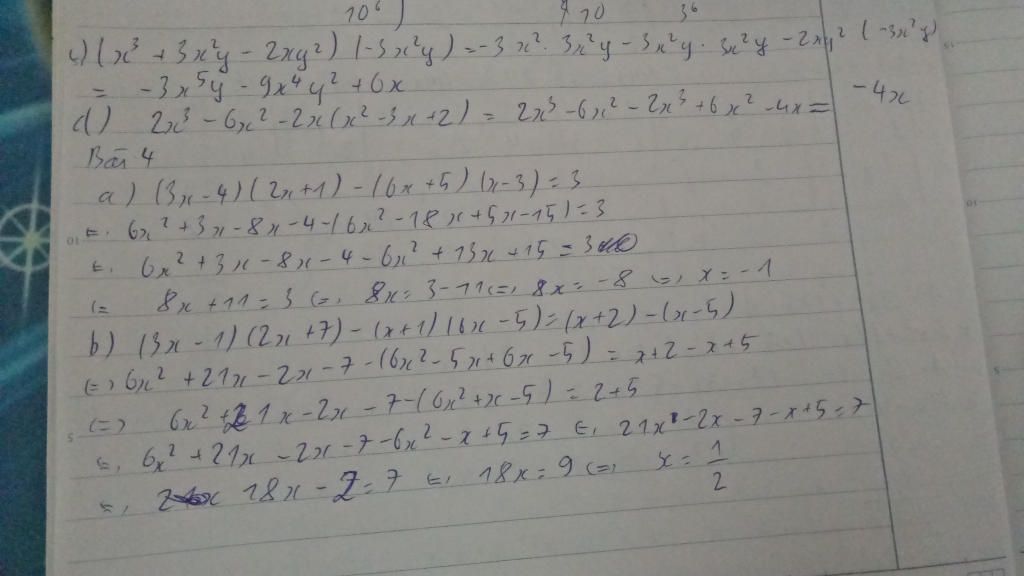 10⁶ ) 10 3⁶
c) (x³ + 3x²y - 2xy²) (-3x²y) = -3x². 3x²y - 3x²y . 3x²y - 2xy² (-3x²y)
= -3x⁵y - 9x⁴y² + 6x
d) 2x³ - 6x² - 2x(x² - 3x + 2) = 2x³ - 6x² - 2x³ + 6x² - 4x = -4x
Bài 4
a) (3x - 4) (2x + 1) - (6x + 5) (x - 3) = 3
⇔ 6x² + 3x - 8x - 4 - (6x² - 18x + 5x - 15) = 3
⇔ 6x² + 3x - 8x - 4 - 6x² + 13x + 15 = 3
⇔ 8x + 11 = 3 ⇔ 8x = 3 - 11 ⇔ 8x = -8 ⇔ x = -1
b) (3x - 1) (2x + 7) - (x + 1) (6x - 5) = (x + 2) - (x - 5)
⇔ 6x² + 21x - 2x - 7 - (6x² - 5x + 6x - 5) = x + 2 - x + 5
⇔ 6x² + 21x - 2x - 7 - (6x² + x - 5) = 2 + 5
⇔ 6x² + 21x - 2x - 7 - 6x² - x + 5 = 7 ⇔ 21x - 2x - 7 - x + 5 = 7
⇔ 18x - 2 = 7 ⇔ 18x = 9 ⇔ x = 1/2